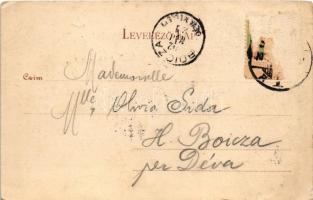 LEVELEZŐ
BOICZA
Czim
Mademoiselle
Mlle Olivia Sida
H. Boicza
per Déva